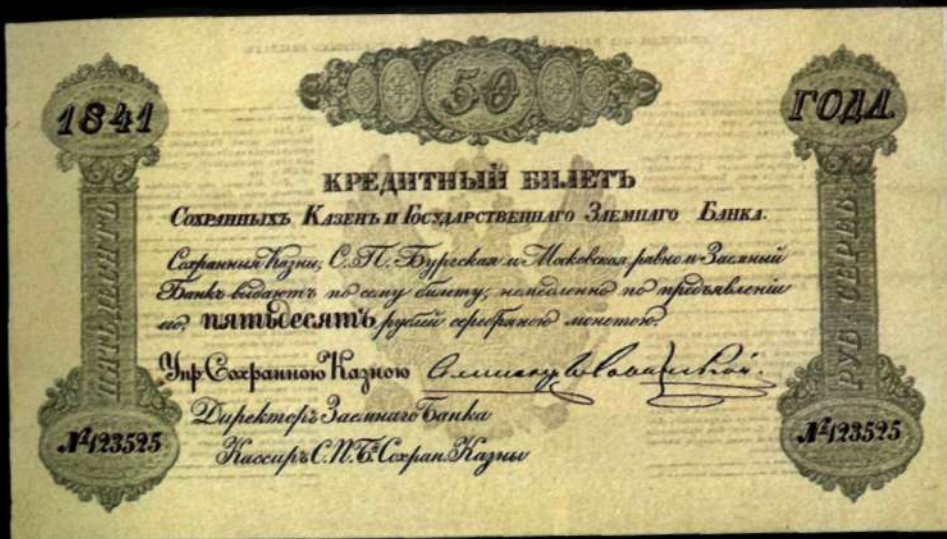 50
1841
ГОДА
КРЕДИТНЫЙ БИЛЕТЪ
СОХРАННЫХЪ КАЗЕНЪ И ГОСУДАРСТВЕННАГО ЗАЕМНАГО БАНКА.
Сохранныя Казны, С. П. Бургская и Московская равно и Заемный
Банкъ выдаютъ по сему билету, немедленно по предъявленіи
его, пятьдесятъ рублей серебряною монетою.
Упр. Сохранною Казною
Директоръ Заемнаго Банка
Кассиръ С. П. Б. Сохран. Казны
ПЯТЬДЕСЯТЪ
РУБ. СЕРЕБ.
№ 123525
№ 123525